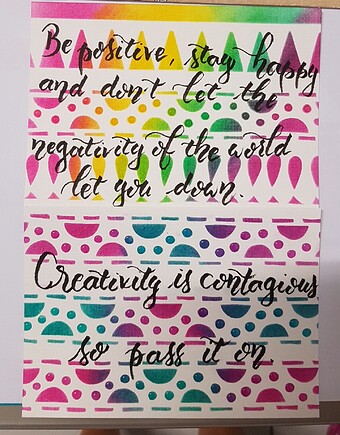 Be positive, stay happy
and don't let the
negativity of the world
let you down.
Creativity is contagious
so pass it on.